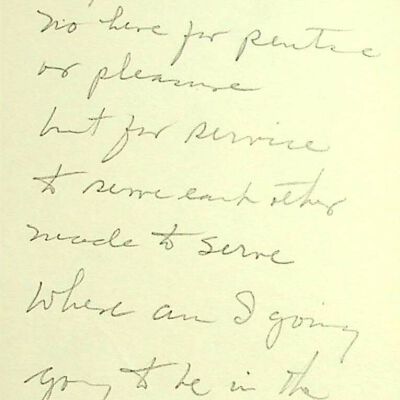 no here for
or pleasure
but for service
to serve each other
made to serve
Where am I going
going to be in the